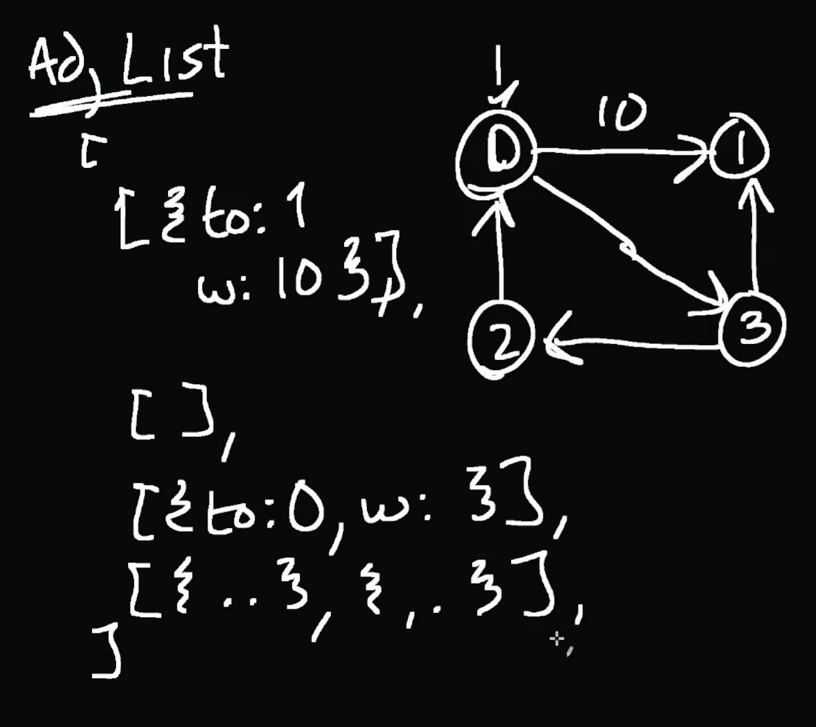 Adj List
[
[{to: 1
w: 10 }],
[ ],
[{to: 0, w: }],
[{ .. }, { ,. }],
]
1
0
10
1
2
3